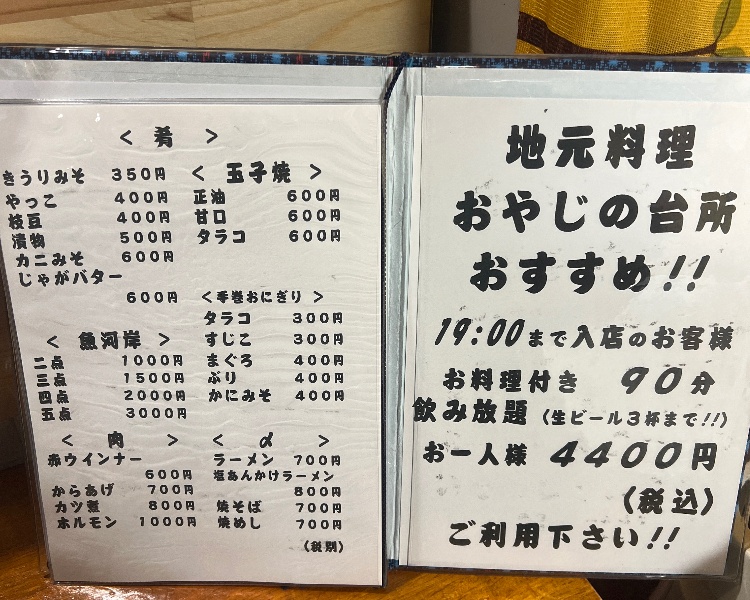 < 肴 >
きうりみそ 350円
やっこ 400円
枝豆 400円
漬物 500円
カニみそ 600円
じゃがバター
600円
< 魚河岸 >
二点 1000円
三点 1500円
四点 2000円
五点 3000円
< 肉 >
赤ウインナー
600円
からあげ 700円
カツ煮 800円
ホルモン 1000円
< 玉子焼 >
正油 600円
甘口 600円
タラコ 600円
<手巻おにぎり >
タラコ 300円
すじこ 300円
まぐろ 400円
ぶり 400円
かにみそ 400円
< 〆 >
ラーメン 700円
塩あんかけラーメン
800円
焼そば 700円
焼めし 700円
(税別)
地元料理
おやじの台所
おすすめ!!
19:00まで入店のお客様
お料理付き 90分
飲み放題 (生ビール3杯まで!!)
お一人様 4400円
(税込)
ご利用下さい!!